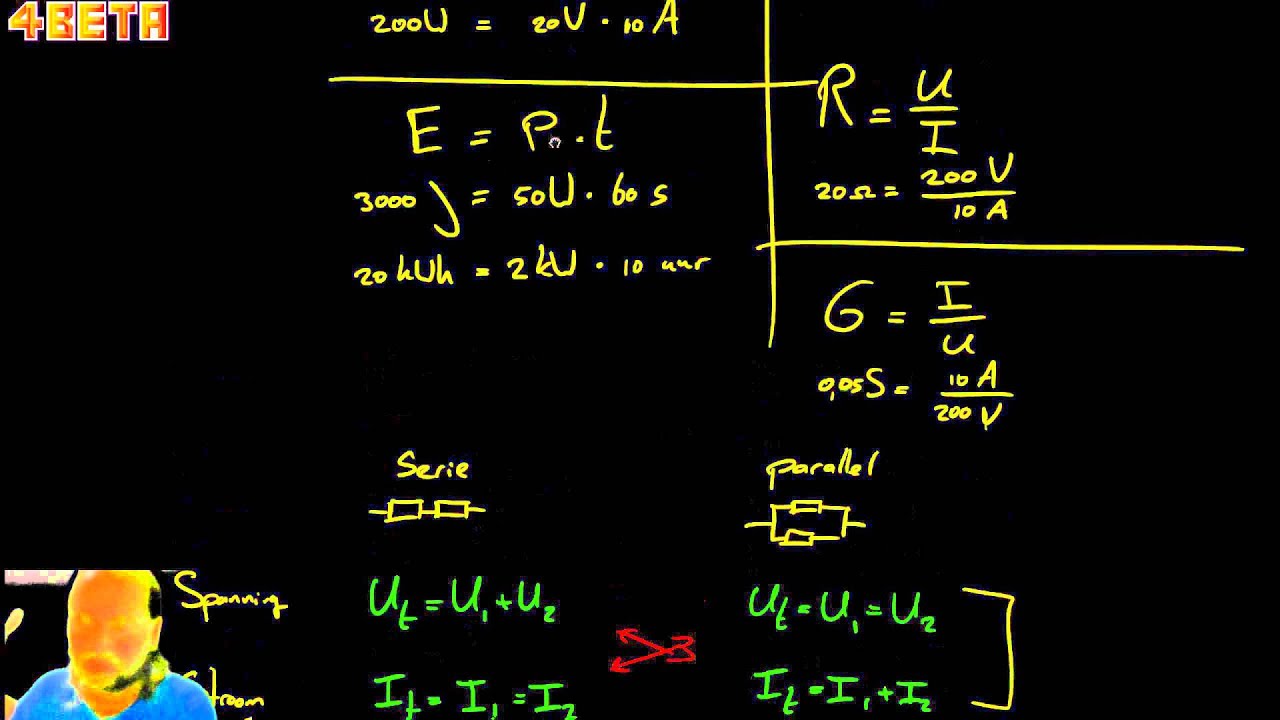 4BETA
200W = 20V · 10A
E = P · t
3000 J = 50W · 60 s
20 kWh = 2 kW · 10 uur
R = U / I
20Ω = 200 V / 10 A
G = I / U
0,05S = 10 A / 200 V
Serie
parallel
Spanning
Uₜ = U₁ + U₂
Uₜ = U₁ = U₂
Stroom
Iₜ = I₁ = I₂
Iₜ = I₁ + I₂